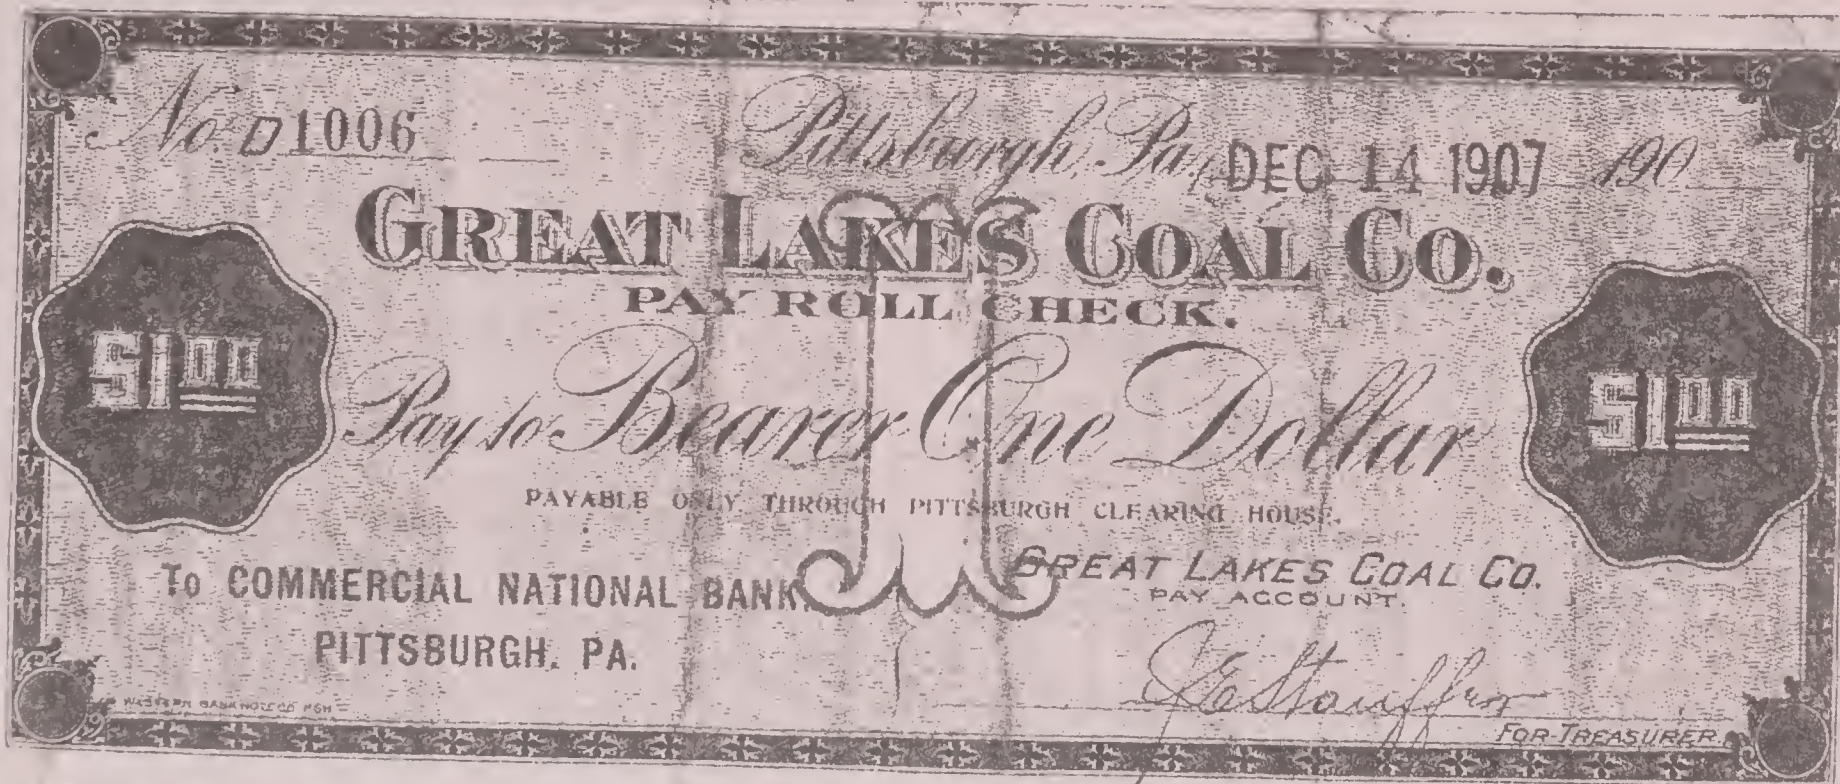 No. D1006
Pittsburgh, Pa., DEC 14 1907 190
GREAT LAKES COAL CO.
PAY ROLL CHECK.
$1 00
Pay to Bearer One Dollar
$1 00
PAYABLE ONLY THROUGH PITTSBURGH CLEARING HOUSE.
To COMMERCIAL NATIONAL BANK,
PITTSBURGH, PA.
GREAT LAKES COAL CO.
PAY ACCOUNT.
J E Stauffer
FOR TREASURER.
WESTERN BANK NOTE CO. PGH